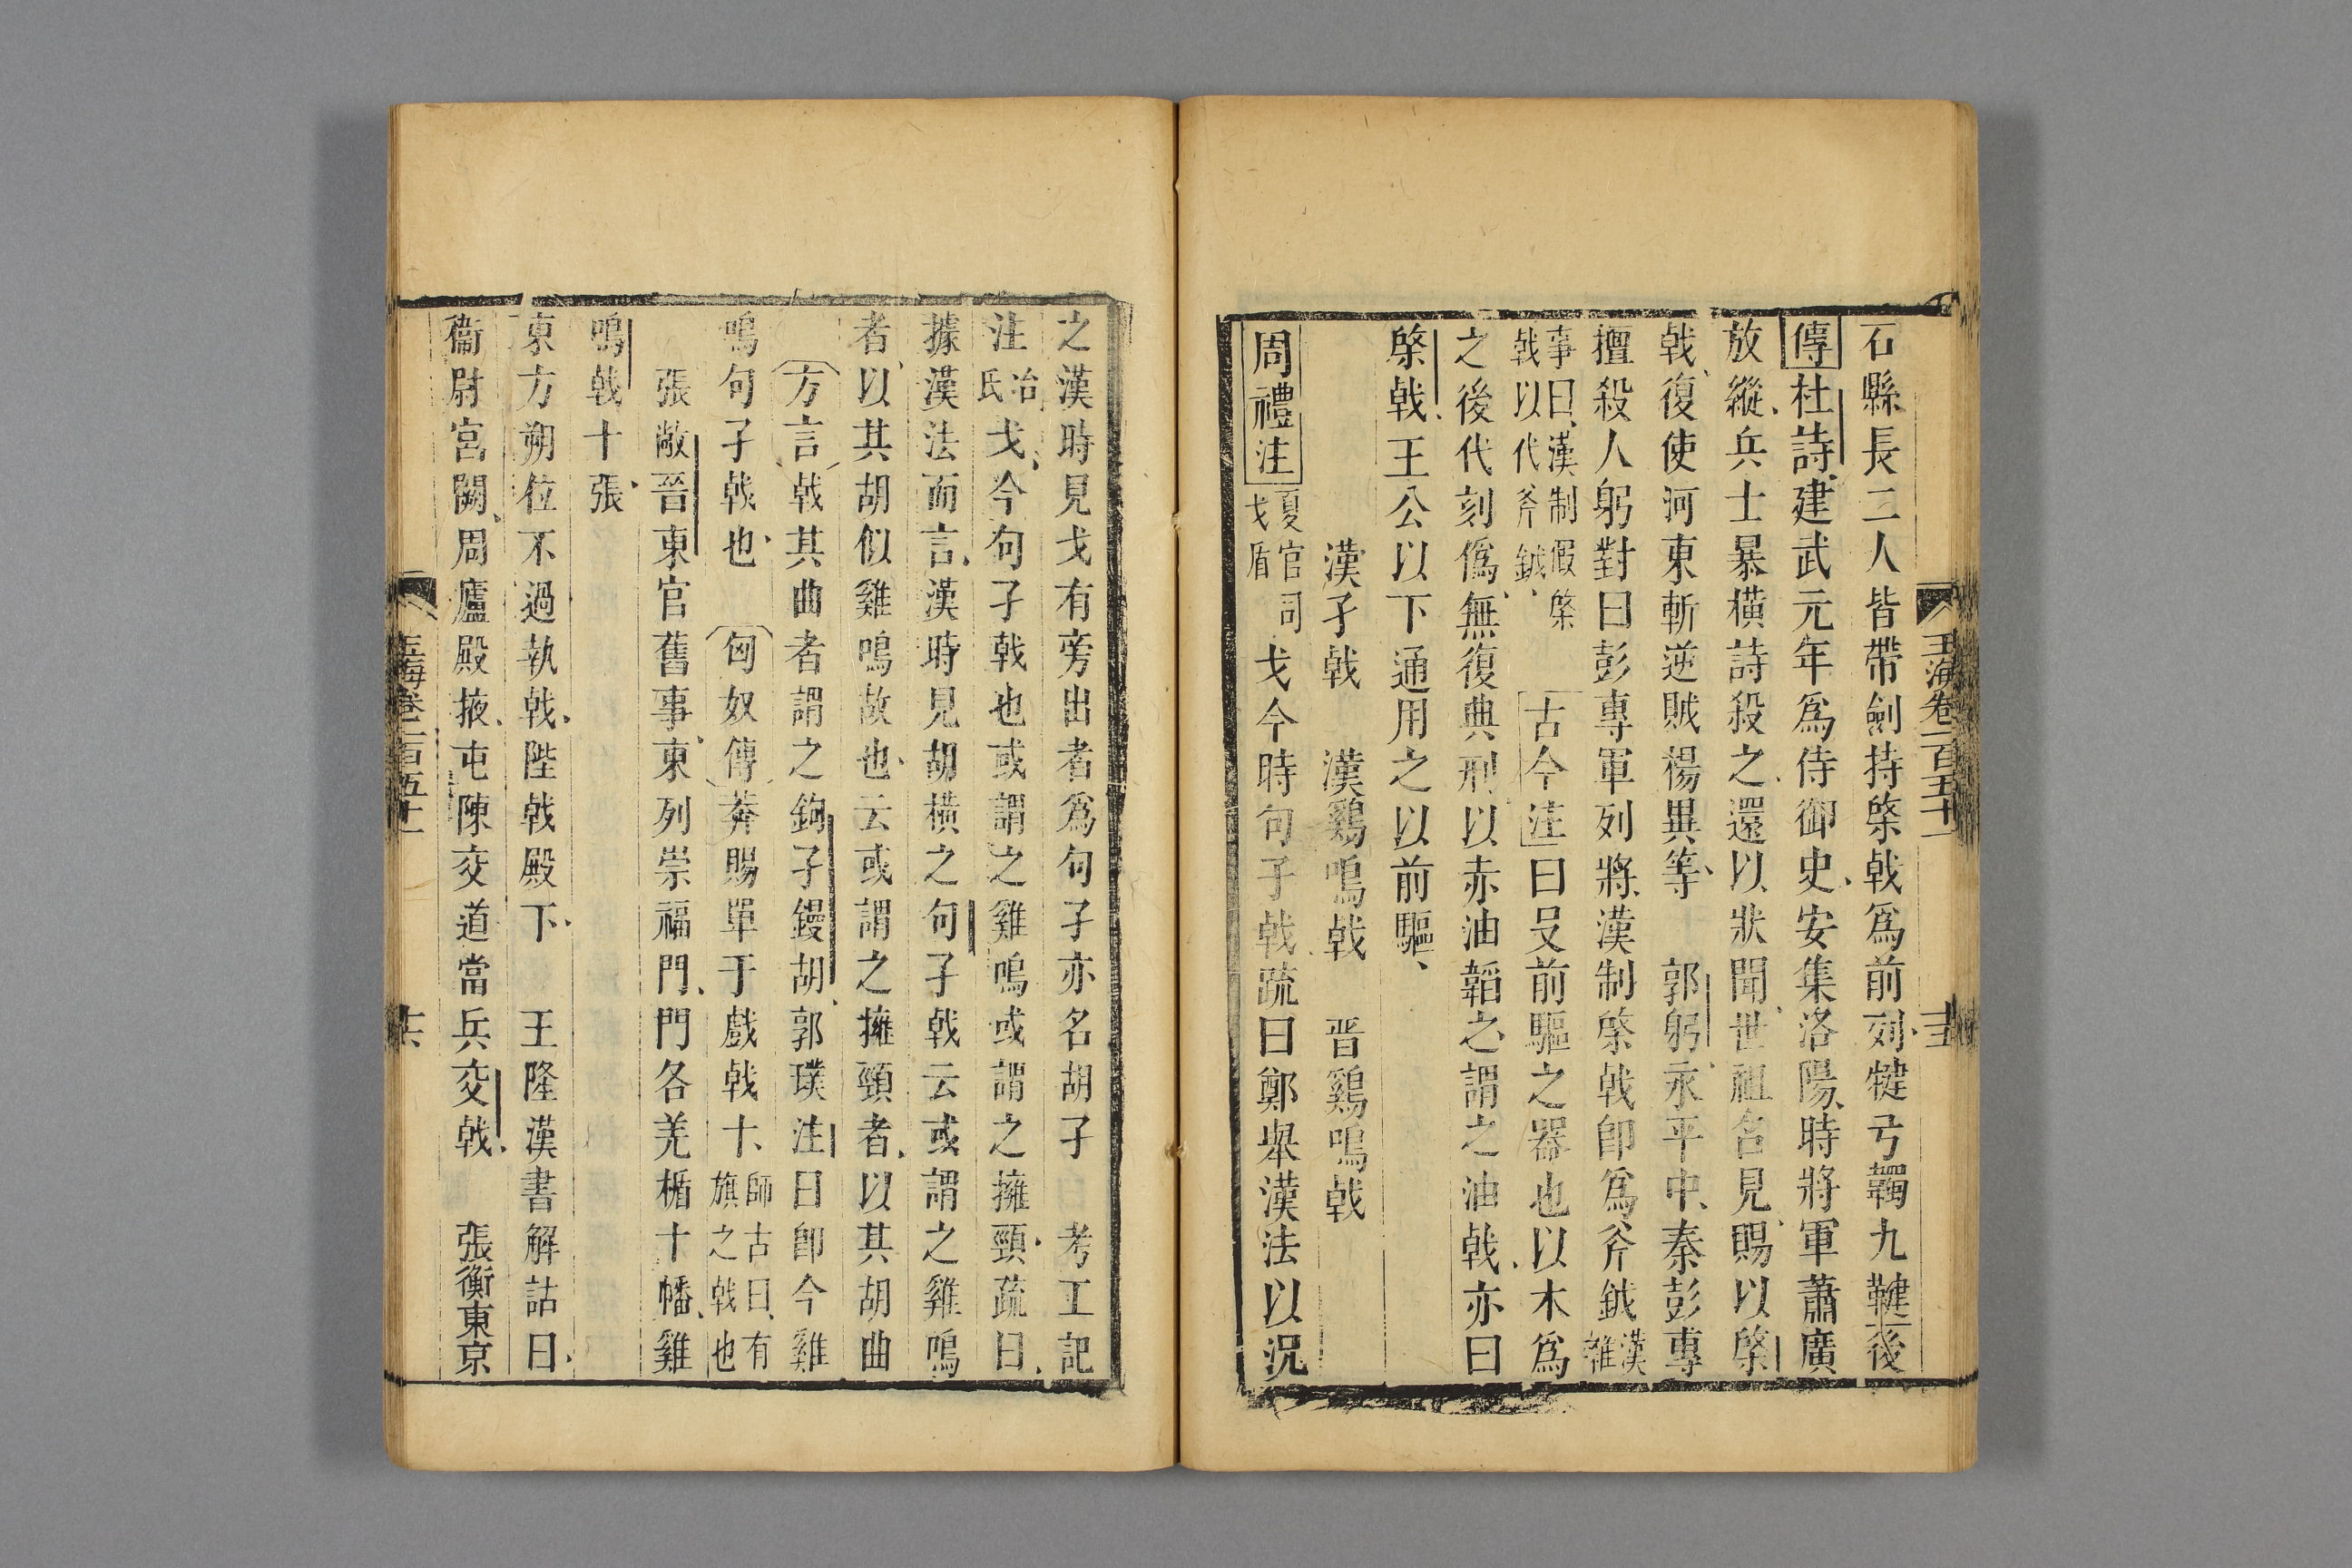 玉海卷一百五十一
石縣長二人皆帶劍持棨戟爲前列揵弓韣九鞬後
傳杜詩建武元年爲侍御史安集洛陽時將軍蕭廣
放縱兵士暴橫詩殺之還以狀聞世祖召見賜以棨
戟復使河東斬逆賊楊異等　郭躬永平中秦彭專
擅殺人躬對曰彭專軍列將漢制棨戟卽爲斧鉞漢雜
事曰漢制假棨戟以代斧鉞　古今注曰殳前驅之器也以木爲
之後代刻僞無復典刑以赤油韜之謂之油戟亦曰
棨戟王公以下通用之以前驅
漢孑戟　漢鷄鳴戟　晋鷄鳴戟
周禮注夏官司戈盾戈今時句孑戟疏曰鄭舉漢法以況
之漢時見戈有旁出者爲句孑亦名胡孑　考工記
注冶氏戈今句孑戟也或謂之雞鳴或謂之擁頸疏曰
據漢法而言漢時見胡橫之句孑戟云或謂之雞鳴
者以其胡似雞鳴故也云或謂之擁頸者以其胡曲
方言戟其曲者謂之鉤孑鏝胡郭璞注曰卽今雞
鳴句孑戟也　匈奴傳莽賜單于戲戟十師古曰有旗之戟也
張敞晉東官舊事東列崇福門門各羌楯十幡雞
鳴戟十張
東方朔位不過執戟陛戟殿下　王隆漢書解詁曰
衞尉宮闕周廬殿掖屯陳夾道當兵交戟　張衡東京
玉海卷一百五十一